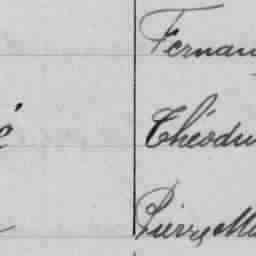 Fernan
é Théodu
Pierre Ma